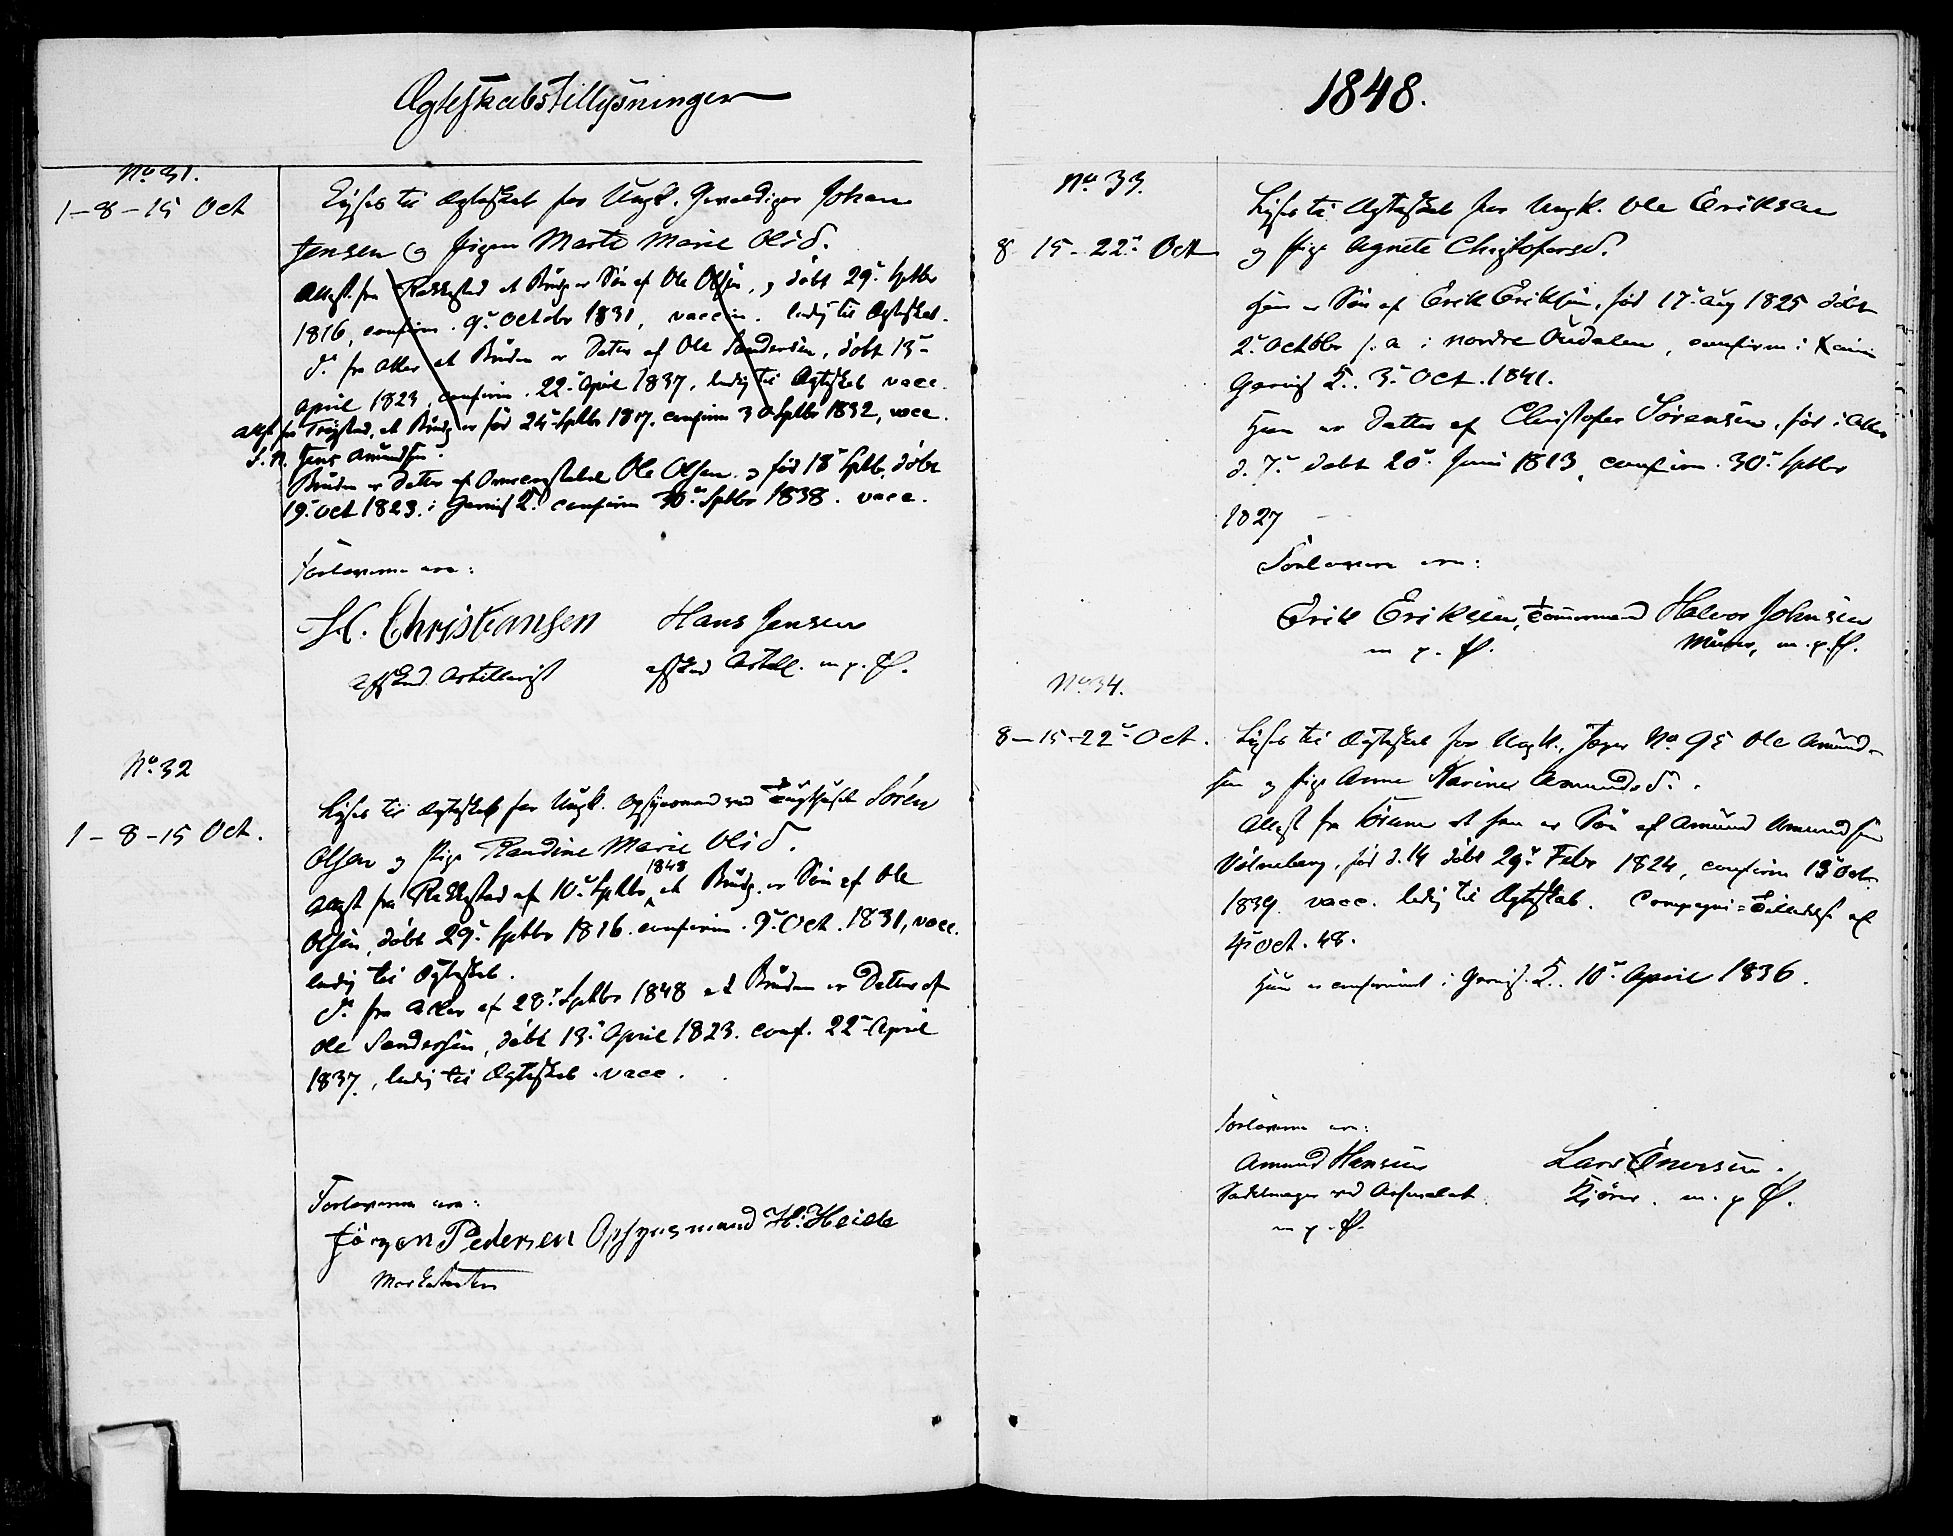 Ægteskabstillysninger
No 31.
1-8-15 Oct
Lyses til Ægteskab for Ungk. Johan
Jensen og Pigen Marte Marie Olsd.
Attest fra Rakkestad at Brudg. er Søn af Ole Olsen, døbt 29. Sptbr
1816, confirm. 9. Octobr 1831, vaccin. ledig til Ægteskab.
Do fra Aker at Bruden er Datter af Ole Sandersen, døbt 13.
April 1823, confirm. 22. April 1837, ledig til Ægteskab vacc.
Attst fra Trygstad, at Brudg. er fød 24. Sptbr 1817. confirm 30 Sptbr 1832, vacc.
S. A. Jens Amundsen.
Bruden er Datter af Ole Olsen og fød 18 Sptb. døbt
19. Oct 1823. i confirm 30. Sptbr 1838. vacc.
Forloverne ere:
H. Christiansen Hans Jensen
afsked. Artillerist afsked Artill. m. p. P.
No. 32
1-8-15 Oct.
Lyses til Ægteskab for Ungk. Opsynsmand ved Tugthuset Søren
Olsen og Pige Randine Marie Olsd.
Attest fra Rakkestad af 10. Sptbr 1848 at Brudg. er Søn af Ole
Olsen, døbt 29. Sptbr 1816. confirm. 9. Oct. 1831, vacc.
ledig til Ægteskab.
Do fra Aker af 28. Sptbr 1848 at Bruden er Datter af
Ole Sandersen, døbt 13. April 1823. conf. 22. April
1837, ledig til Ægteskab. vacc.
Forloverne ere:
Jörgen Pedersen Opsynsmand H. Heide
Marketenter
1848.
No. 33.
8 15-22. Oct
Lyses til Ægteskab for Ungk. Ole Eriksen
og Pige Agnete Christophersd.
Han er Søn af Erik Eriksen, fød 17. Aug 1825 døbt
2. Octobr s. a. i nordre Oudalen, confirm i
3. Oct. 1841.
Hun er Datter af Christopher Sørensen, fød i Aker
d. 7. døbt 20. Juni 1813, confirm. 30. Sptbr
1827
Forloverne ere:
Erik Eriksen, Tømmermand Halvor Johnsen
m. p. P. Murer, m. p. P.
No. 34.
8-15-22. Oct.
Lyses til Ægteskab for Ungk., Jæger No 95 Ole Amund-
sen og Pige Anne Karine Amundsd.
Attest fra at han er Søn af Amund Amundsen
fød d. 14 døbt 29. Febr 1824, confirm 13 Oct.
1839. vacc. ledig til Ægteskab. Compagni-Tilladelse af
4. Oct. 48.
Hun er confirmeret i 10. April 1836.
Forloverne ere:
Amund Hansen Lars Enersen.
Sadelmager ved Arsenalet. m. p. P.
m. p. P.